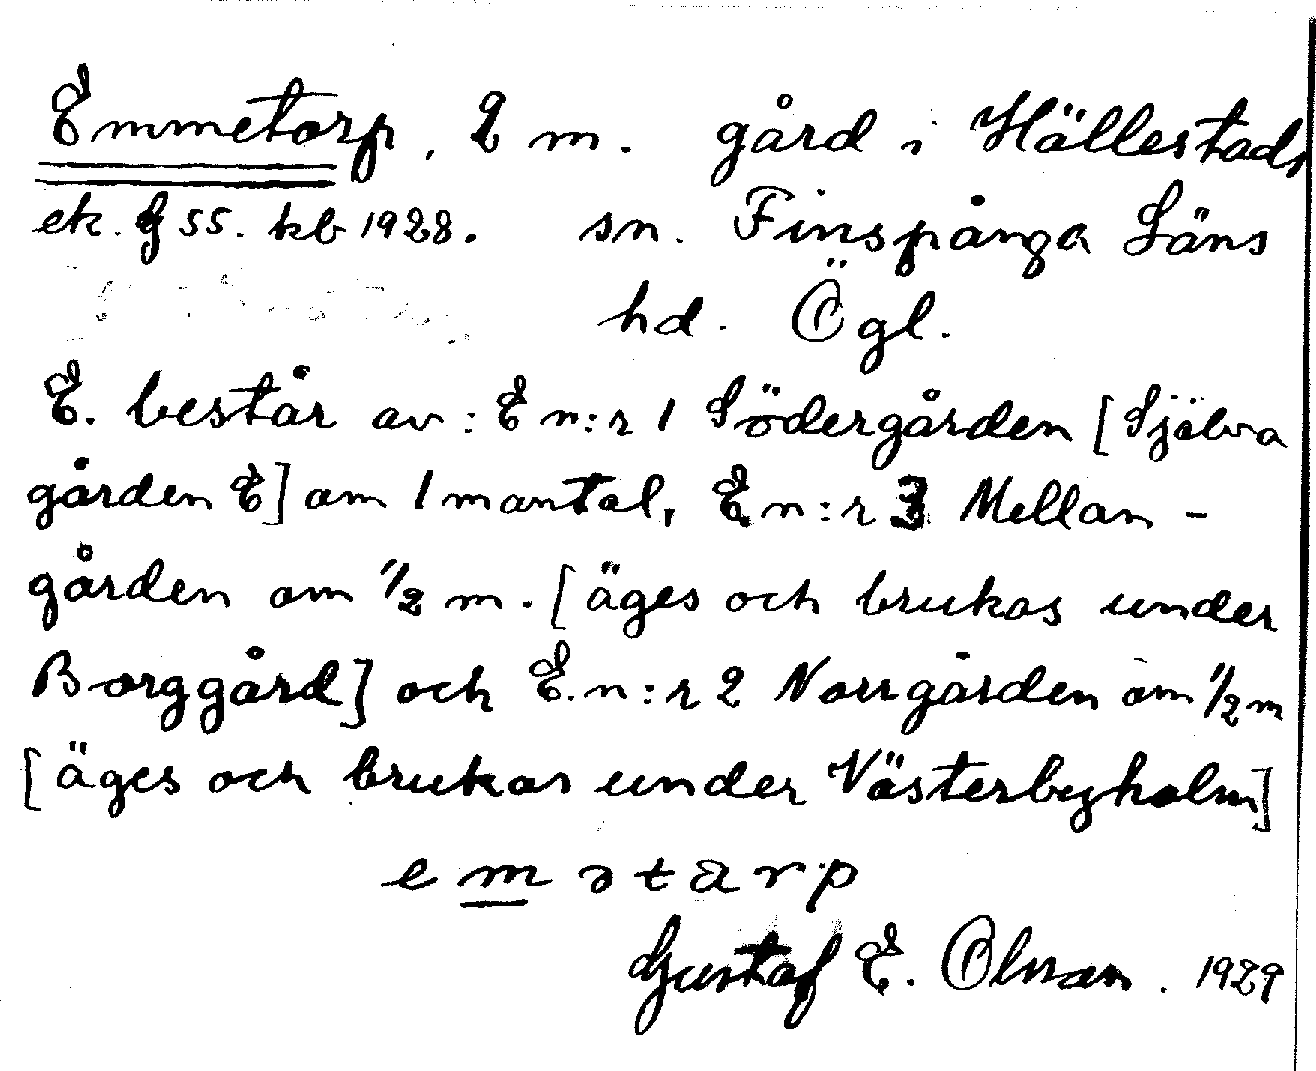 Emmetorp, 2 m. gård i Hällestads
ek. 55. kb 1928. sn. Finspånga Läns
hd. Ögl.
E. består av: E n:r 1 Södergården [Själva
gården E] om 1 mantal, E n:r 3 Mellan-
gården om 1/2 m. [äges och brukas under
Borggård] och E. n:r 2 Norrgården om 1/2 m
[äges och brukas under Västerbyholm]
emətarp
Gustaf E. Olman. 1929